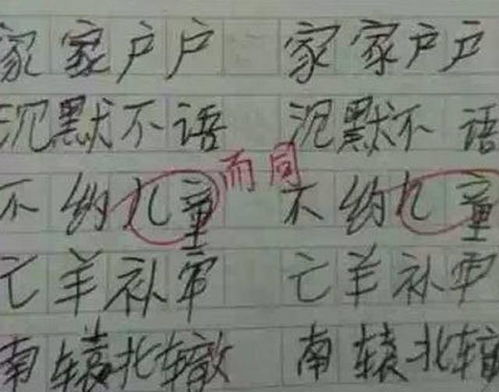 家家户户 家家户户
沉默不语 沉默不语
不约儿童 而同 不约儿童
亡羊补牢 亡羊补牢
南辕北辙 南辕北辙